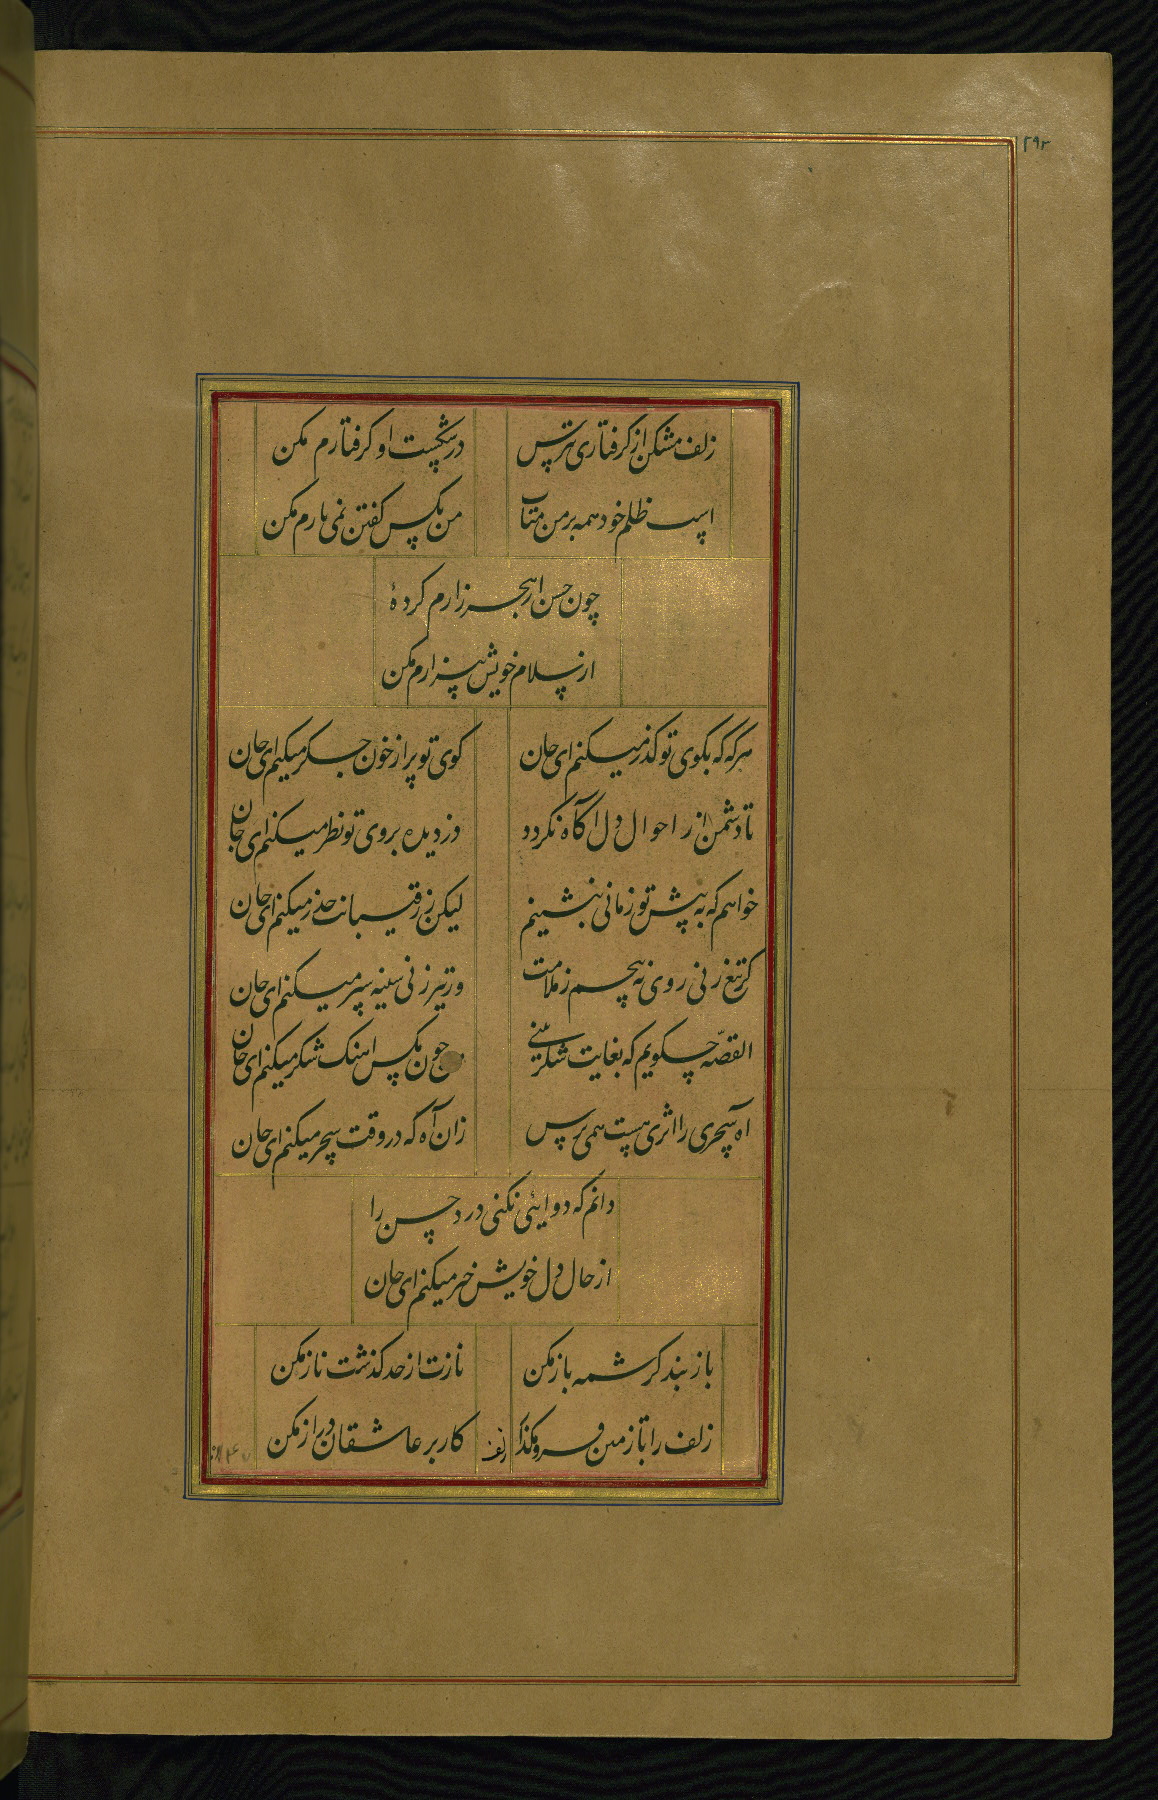 ۲۹۲
زلف مشکن از گرفتاری بترس
در شکست او گرفتارم مکن
اسب ظلم خود همه بر من متاب
من بکس گفتن نمی یارم مکن
چون حسن از هجر زارم کردهٔ
از سلام خویش بیزارم مکن
هرگه که بکوی تو گذر میکنم ای جان
کوی تو پر از خون جگر میکنم ای جان
تا دشمن از راحوال دل آگاه نگردد
دزدیده بروی تو نظر میکنم ای جان
خواهم که به پیش تو زمانی بنشینم
لیکن ز رقیبانت حذر میکنم ای جان
گر تیغ زنی روی نه پیچم ز ملامت
ور تیر زنی سینه سپر میکنم ای جان
القصّه چگویم که بغایت شکرینی
چون مکس اهنک شکر میکنم ای جان
آه سحری را اثری هست همی ترس
زان آه که در وقت سحر میکنم ای جان
دانم که دوایی نکنی درد حسن را
از حال دل خویش خبر میکنم ای جان
باز بند کرشمه باز مکن
نازت از حد گذشت ناز مکن
زلف را تا زمین فرو مگذار
کار بر عاشقان دراز مکن